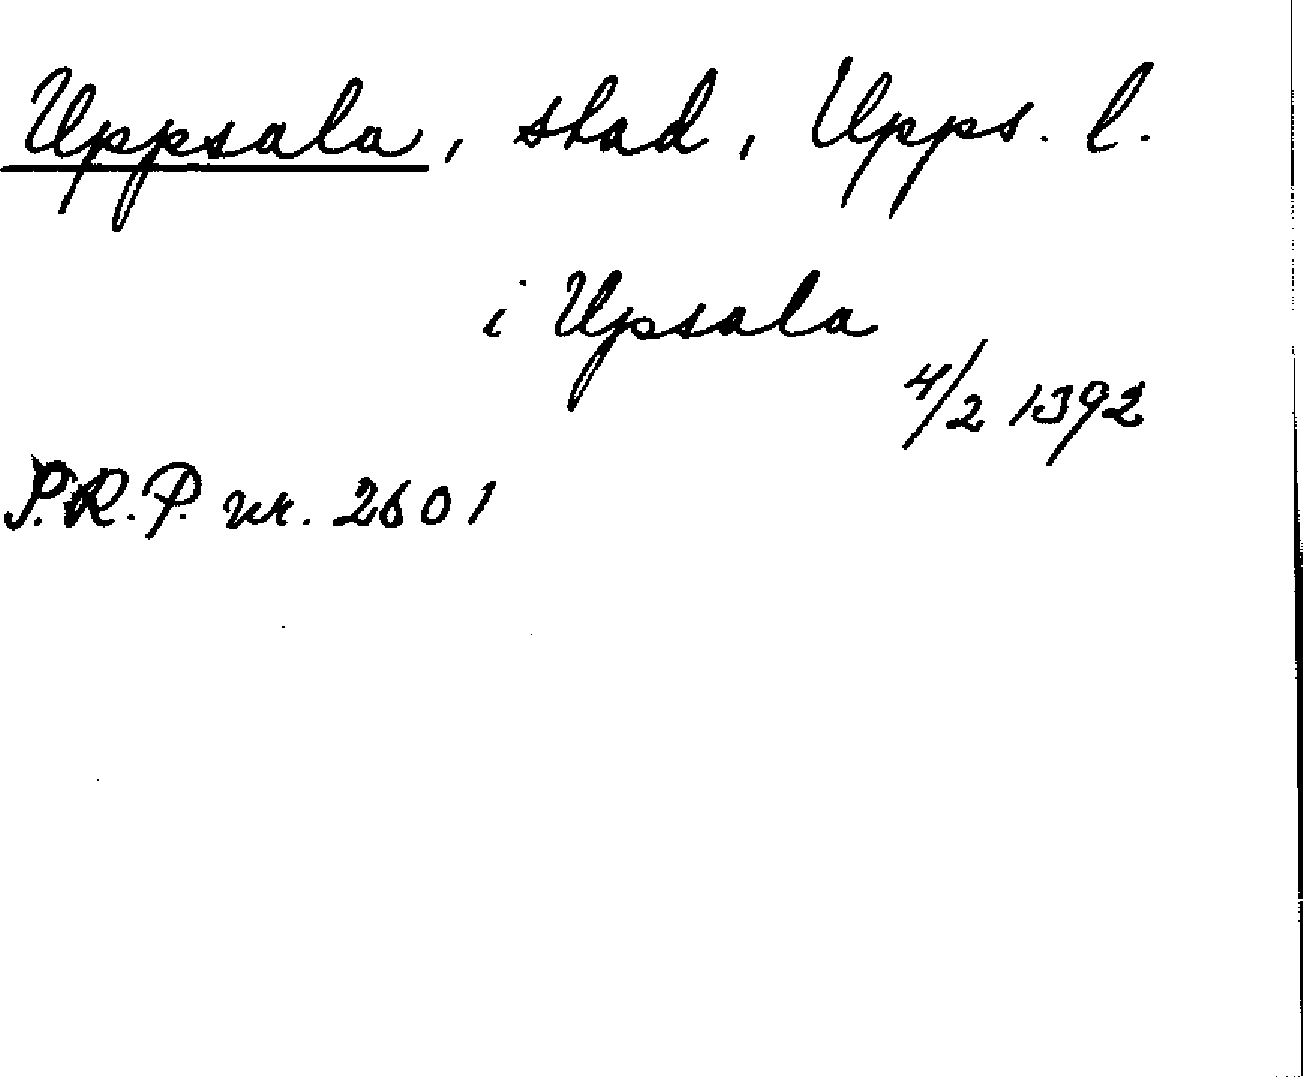 Uppsala, stad, Upps. l.
i Upsala
4/2 1392
P.R.P. nr. 2601